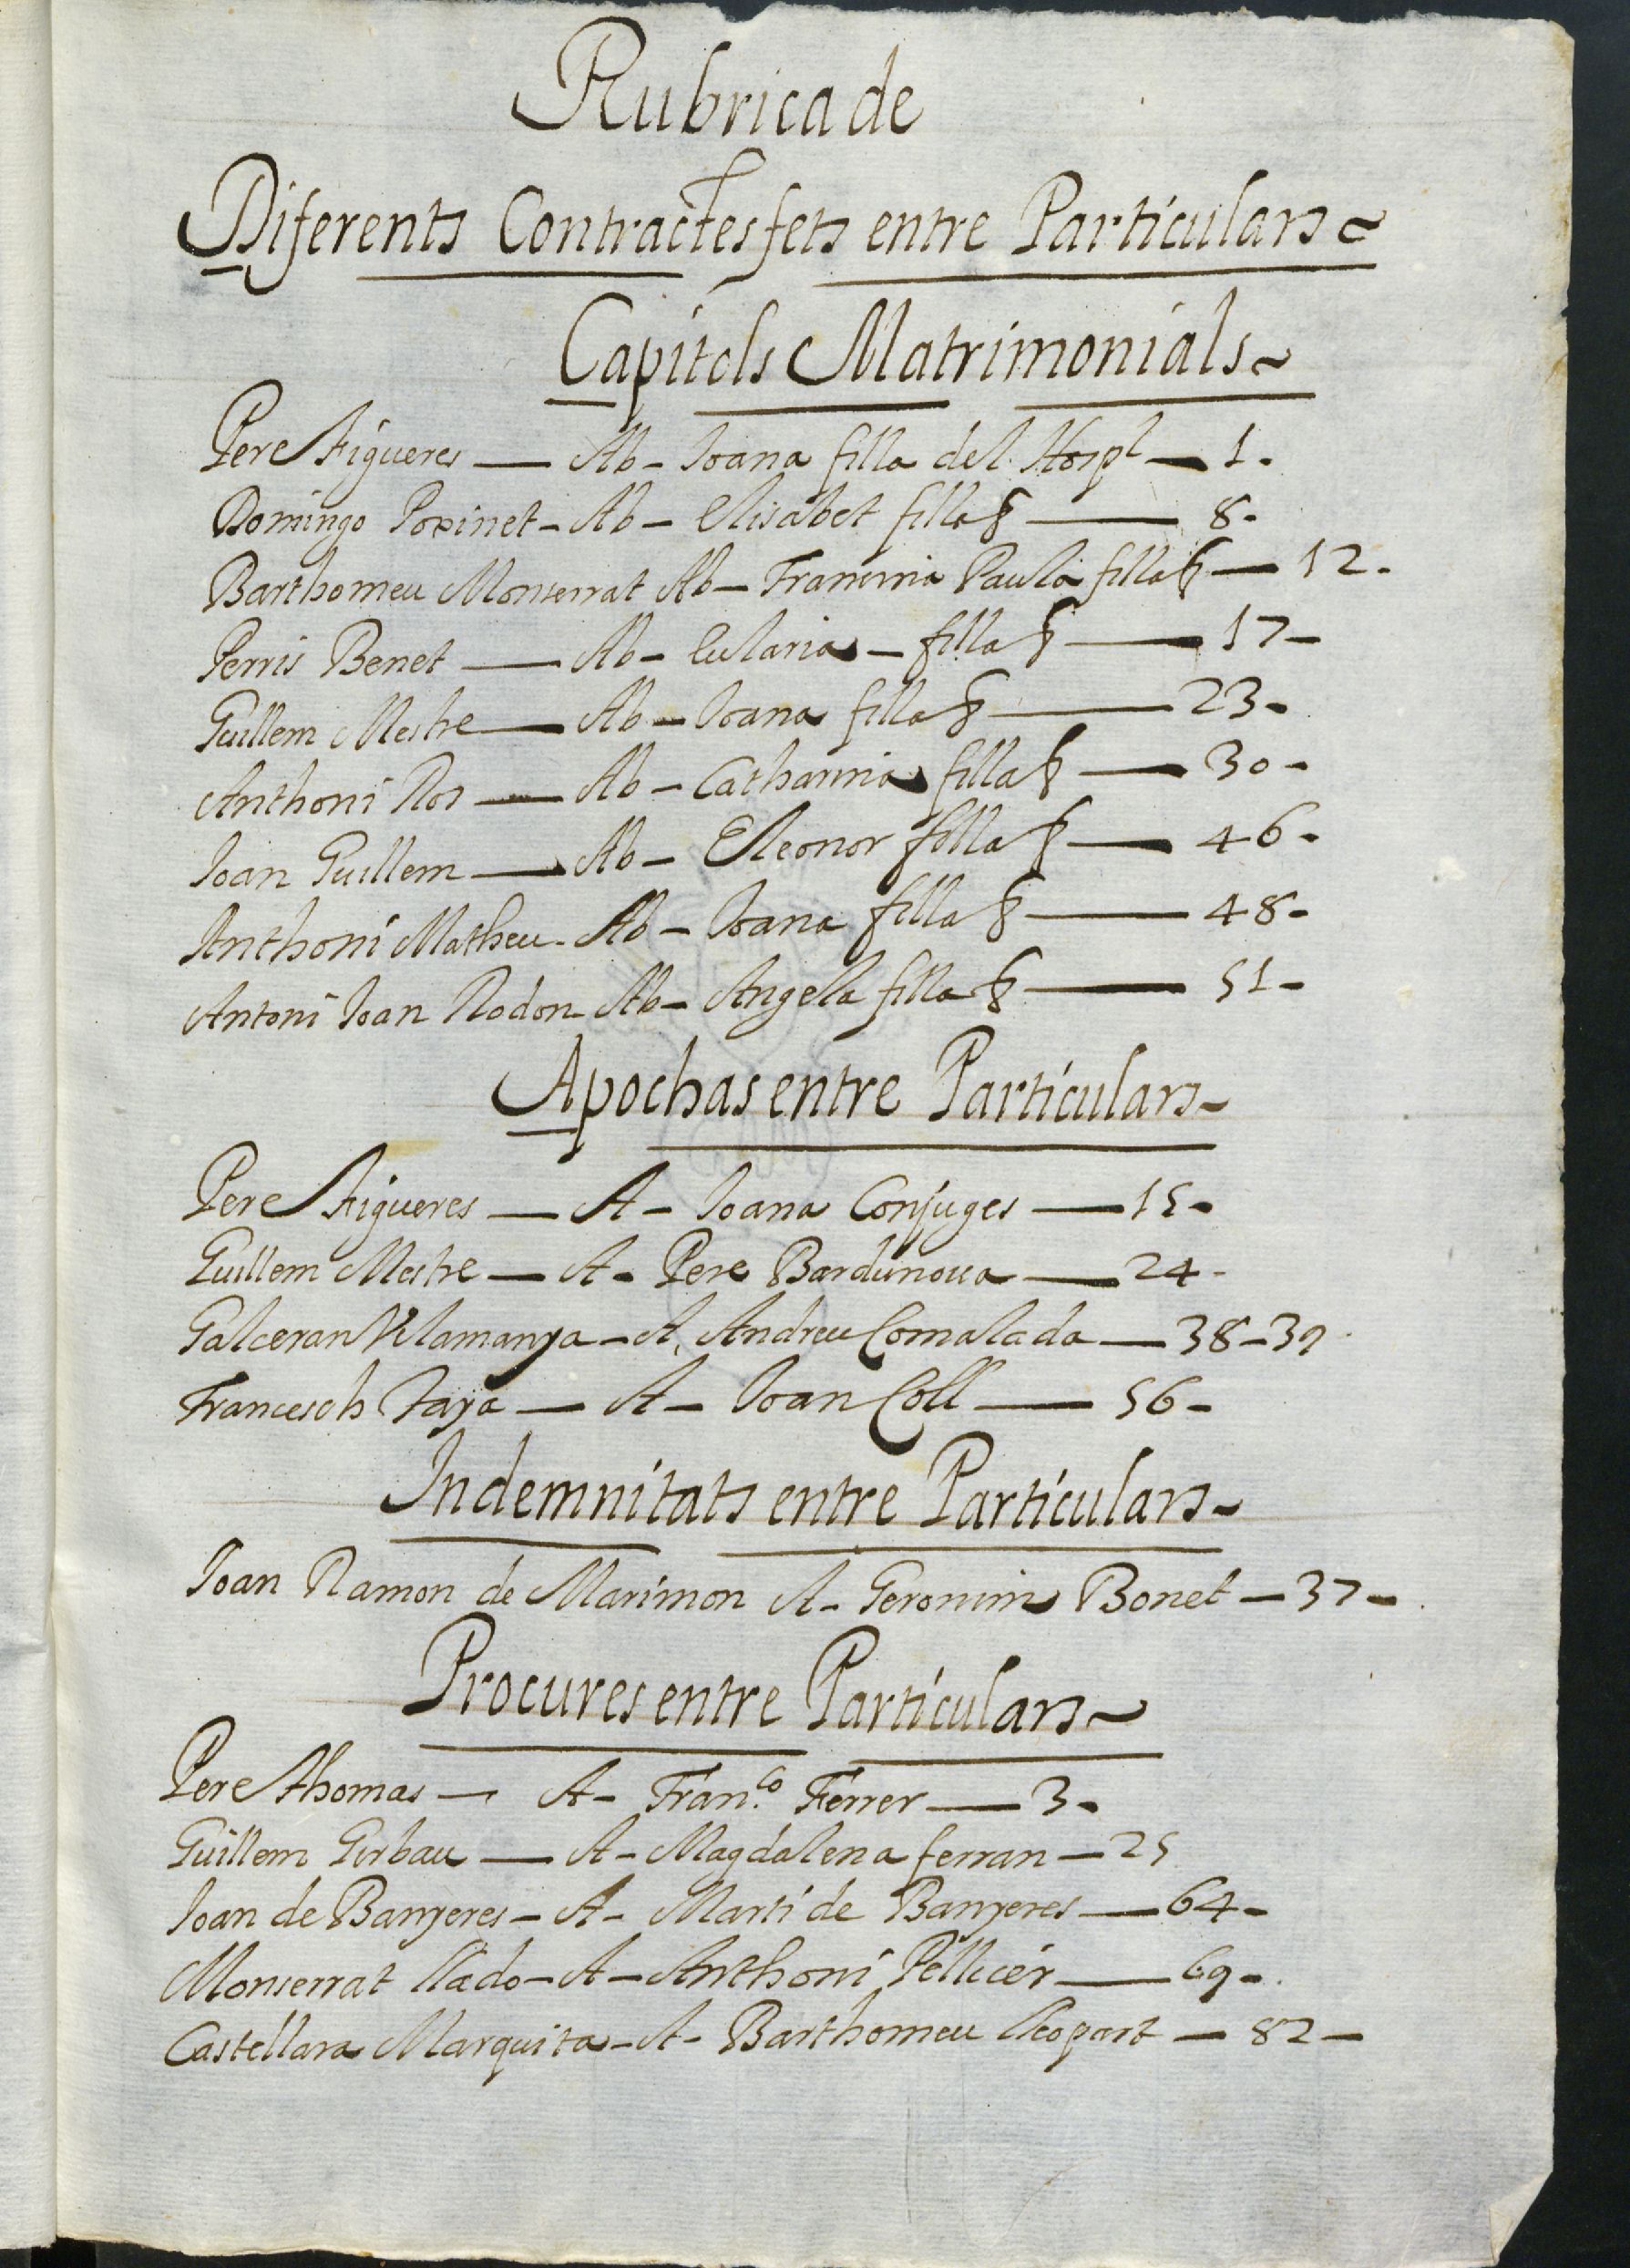 Rubrica de
Diferents Contractes fets entre Particulars
Capitols Matrimonials
Pere Figueres — Ab - Joana filla del Hospl — 1.
Domingo Poxinet - Ab - Elisabet filla § — 8 -
Barthomeu Monserrat Ab - Francina Paula filla § — 12 -
Perris Benet — Ab - Eularia - filla § — 17 -
Guillem Mestre — Ab - Joana filla § — 23 -
Anthoni Ros — Ab - Catharina filla § — 30 -
Joan Guillem — Ab - Eleonor filla § — 46 -
Anthoni Matheu - Ab - Joana filla § — 48 -
Antoni Joan Rodon Ab - Angela filla § — 51 -
Apochas entre Particulars
Pere Figueres — A - Joana Conjuges — 15 -
Guillem Mestre — A - Pere Bardunova — 24 -
Galceran Vilamanya - A, Andreu Comalada — 38 - 39
Francesch Taya — A - Joan Coll — 56 -
Indemnitats entre Particulars
Joan Ramon de Marimon A - Geronim Bonet — 37 -
Procures entre Particulars
Pere Thomas — A - Fran.co Ferrer — 3 -
Guillem Girbau — A - Magdalena ferran — 25
Joan de Banyeres - A - Marti de Banyeres — 64 -
Monserrat llado - A - Anthoni Pellicer — 69 -
Castellara Marquita - A - Barthomeu lleopart — 82 -